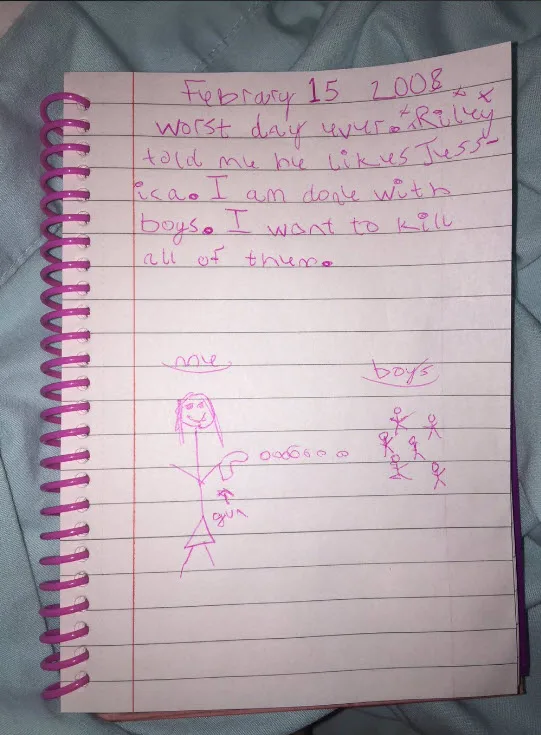 February 15 2008
worst day ever. Riley
told me he likes Jess-
ica. I am done with
boys. I want to kill
all of them.
me
boys
gun